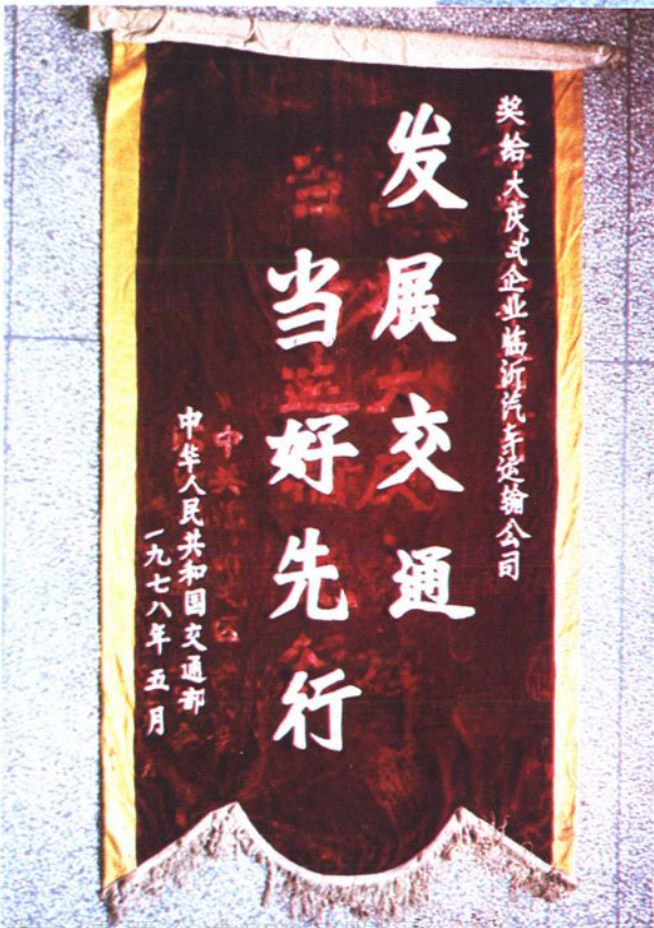 奖给大庆式企业临沂汽车运输公司
发展交通
当好先行
中华人民共和国交通部
一九七八年五月